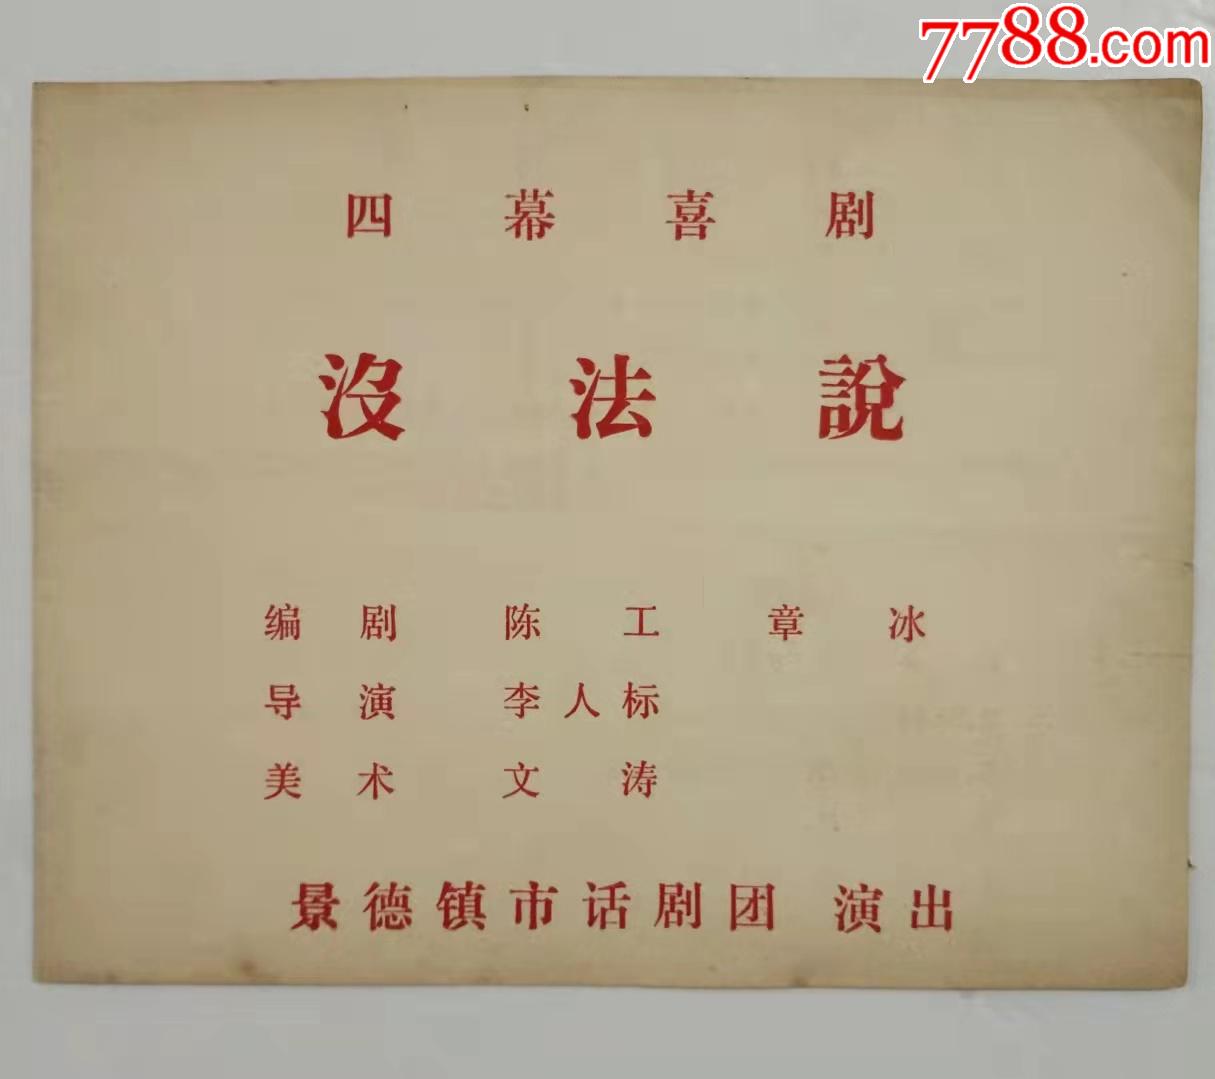 7788.com
四幕喜剧
沒法說
编剧 陈工 章冰
导演 李人标
美术 文涛
景德镇市话剧团 演出